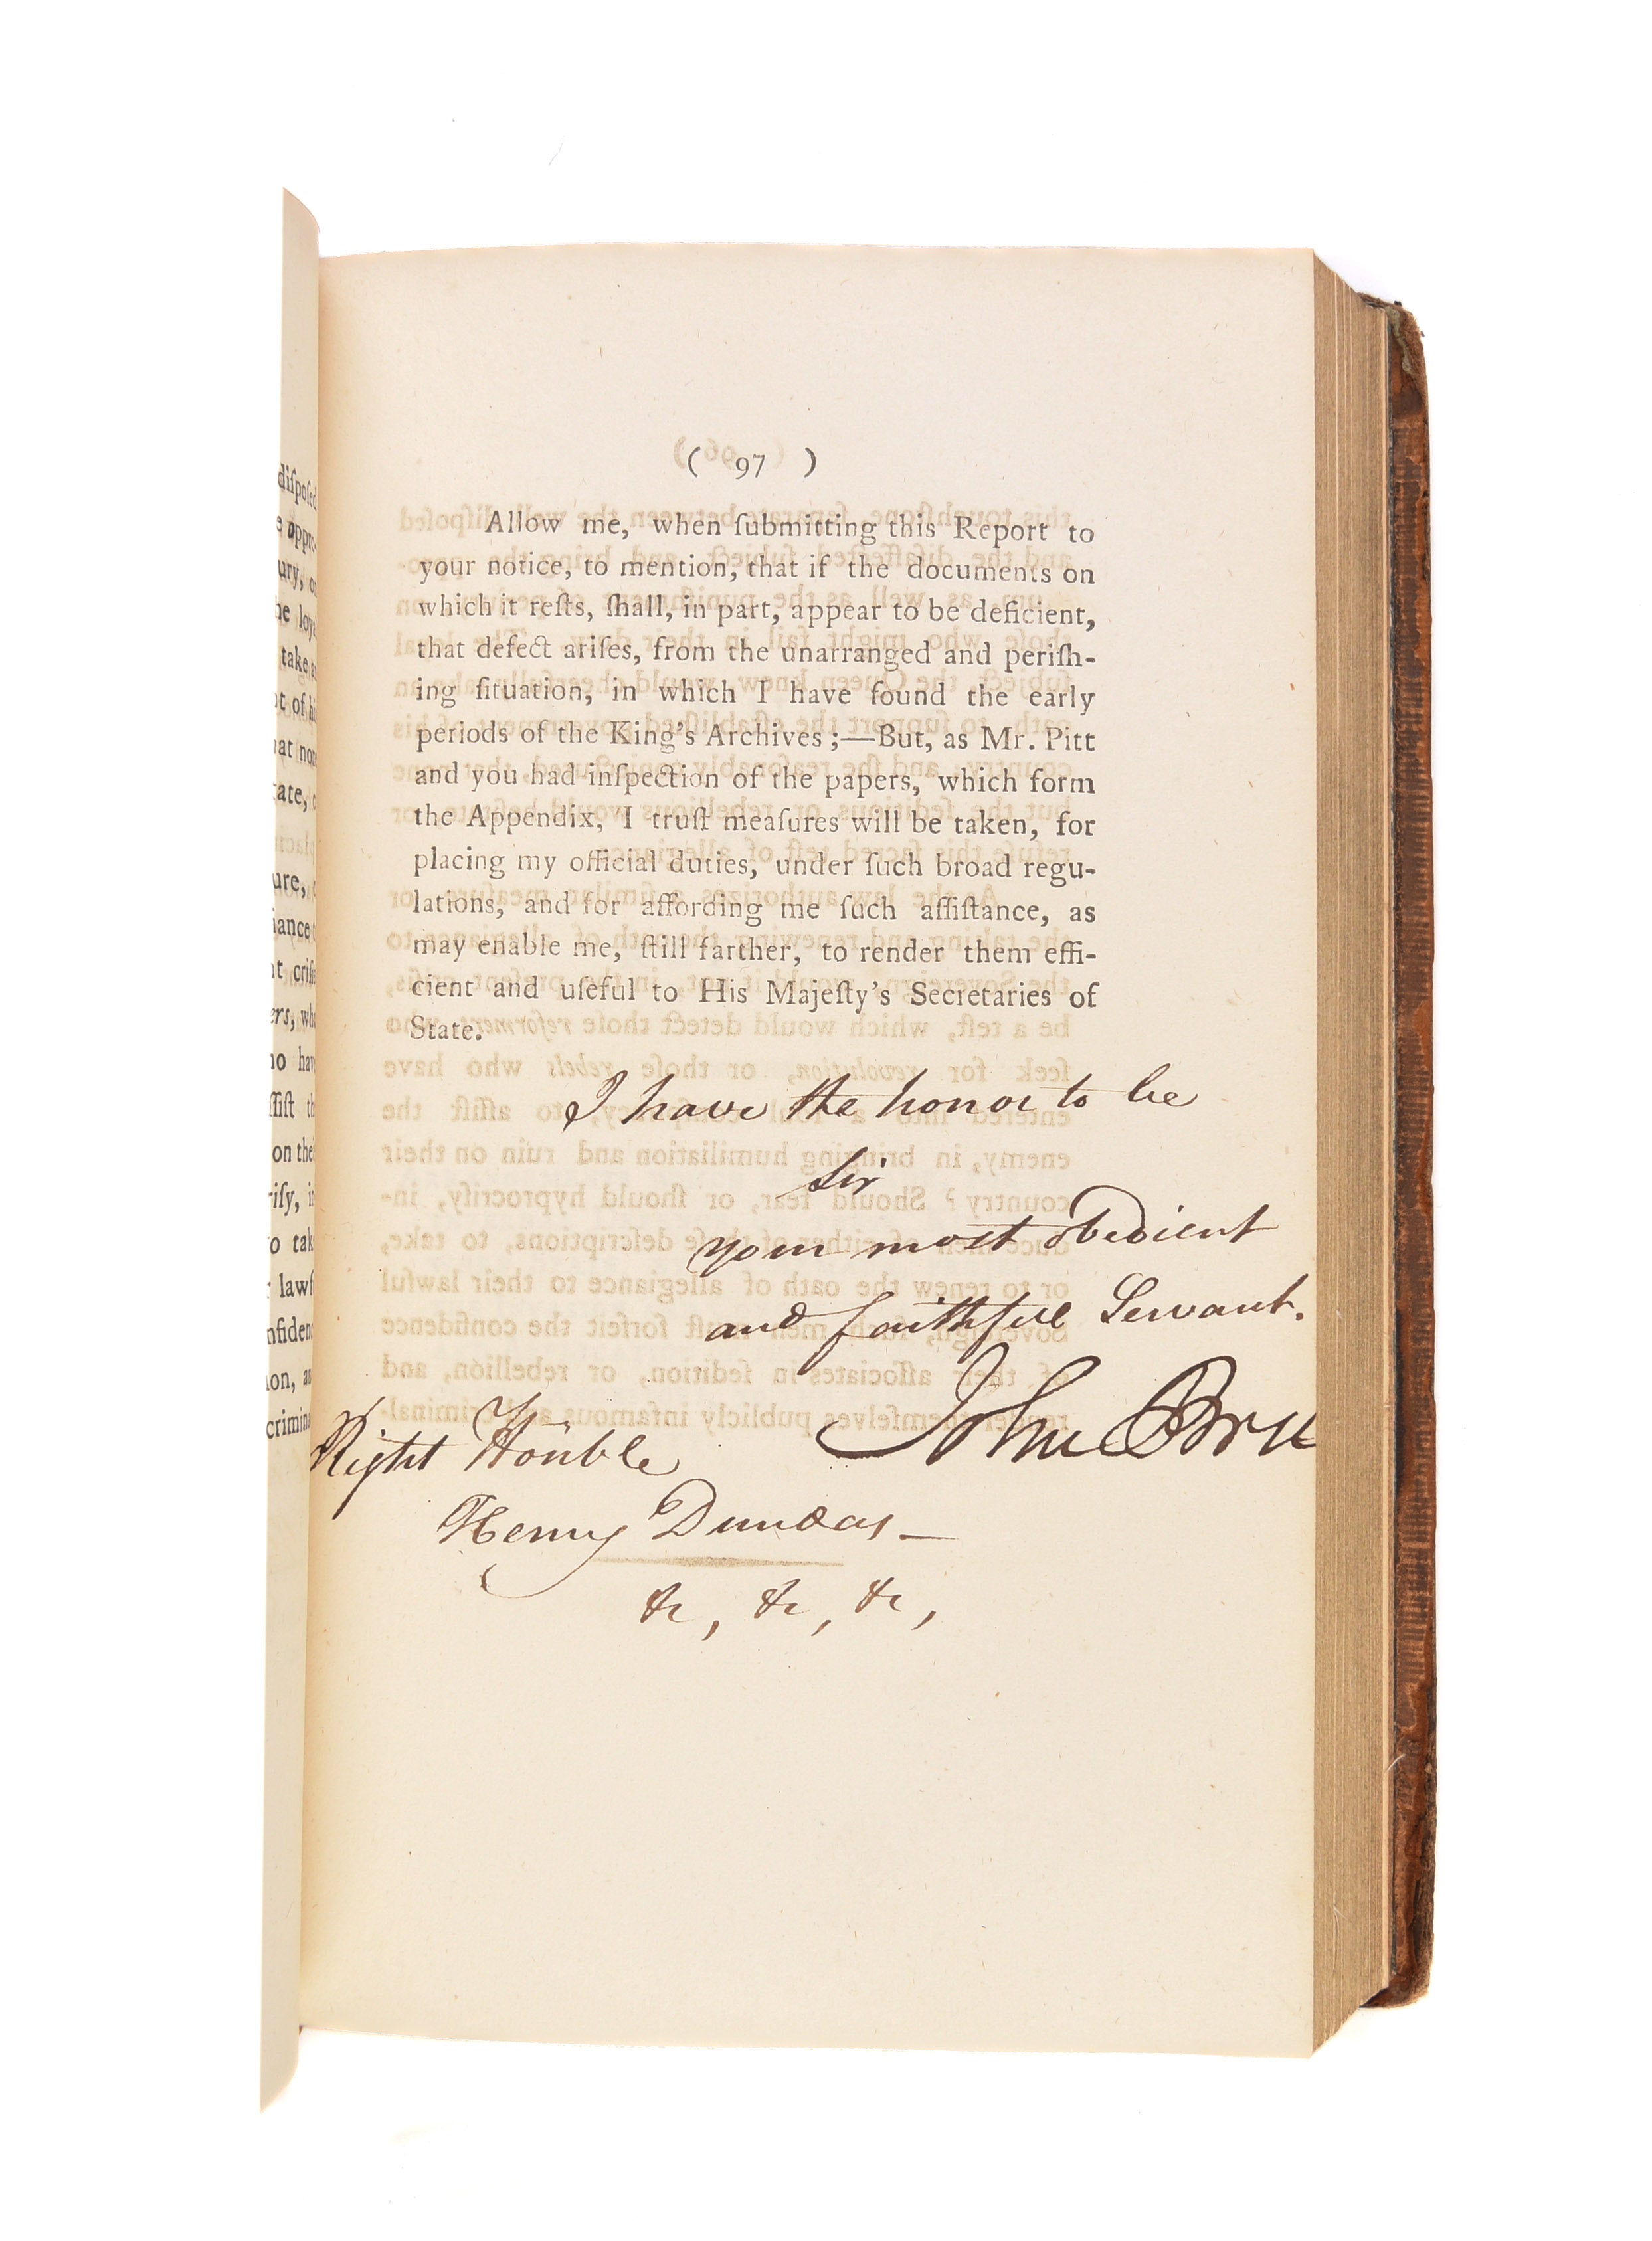 ( 97 )
Allow me, when ſubmitting this Report to
your notice, to mention, that if the documents on
which it reſts, ſhall, in part, appear to be deficient,
that defect ariſes, from the unarranged and periſh-
ing ſituation, in which I have found the early
periods of the King's Archives ;—But, as Mr. Pitt
and you had inſpection of the papers, which form
the Appendix, I truſt meaſures will be taken, for
placing my official duties, under ſuch broad regu-
lations, and for affording me ſuch aſſiſtance, as
may enable me, ſtill farther, to render them effi-
cient and uſeful to His Majeſty's Secretaries of
State.
I have the honor to be
Sir
your most obedient
and faithful Servant.
John Bru
Right Honble
Henry Dundas—
&c, &c, &c,
diſpoſed
ury,
take
ure,
lawf
on the